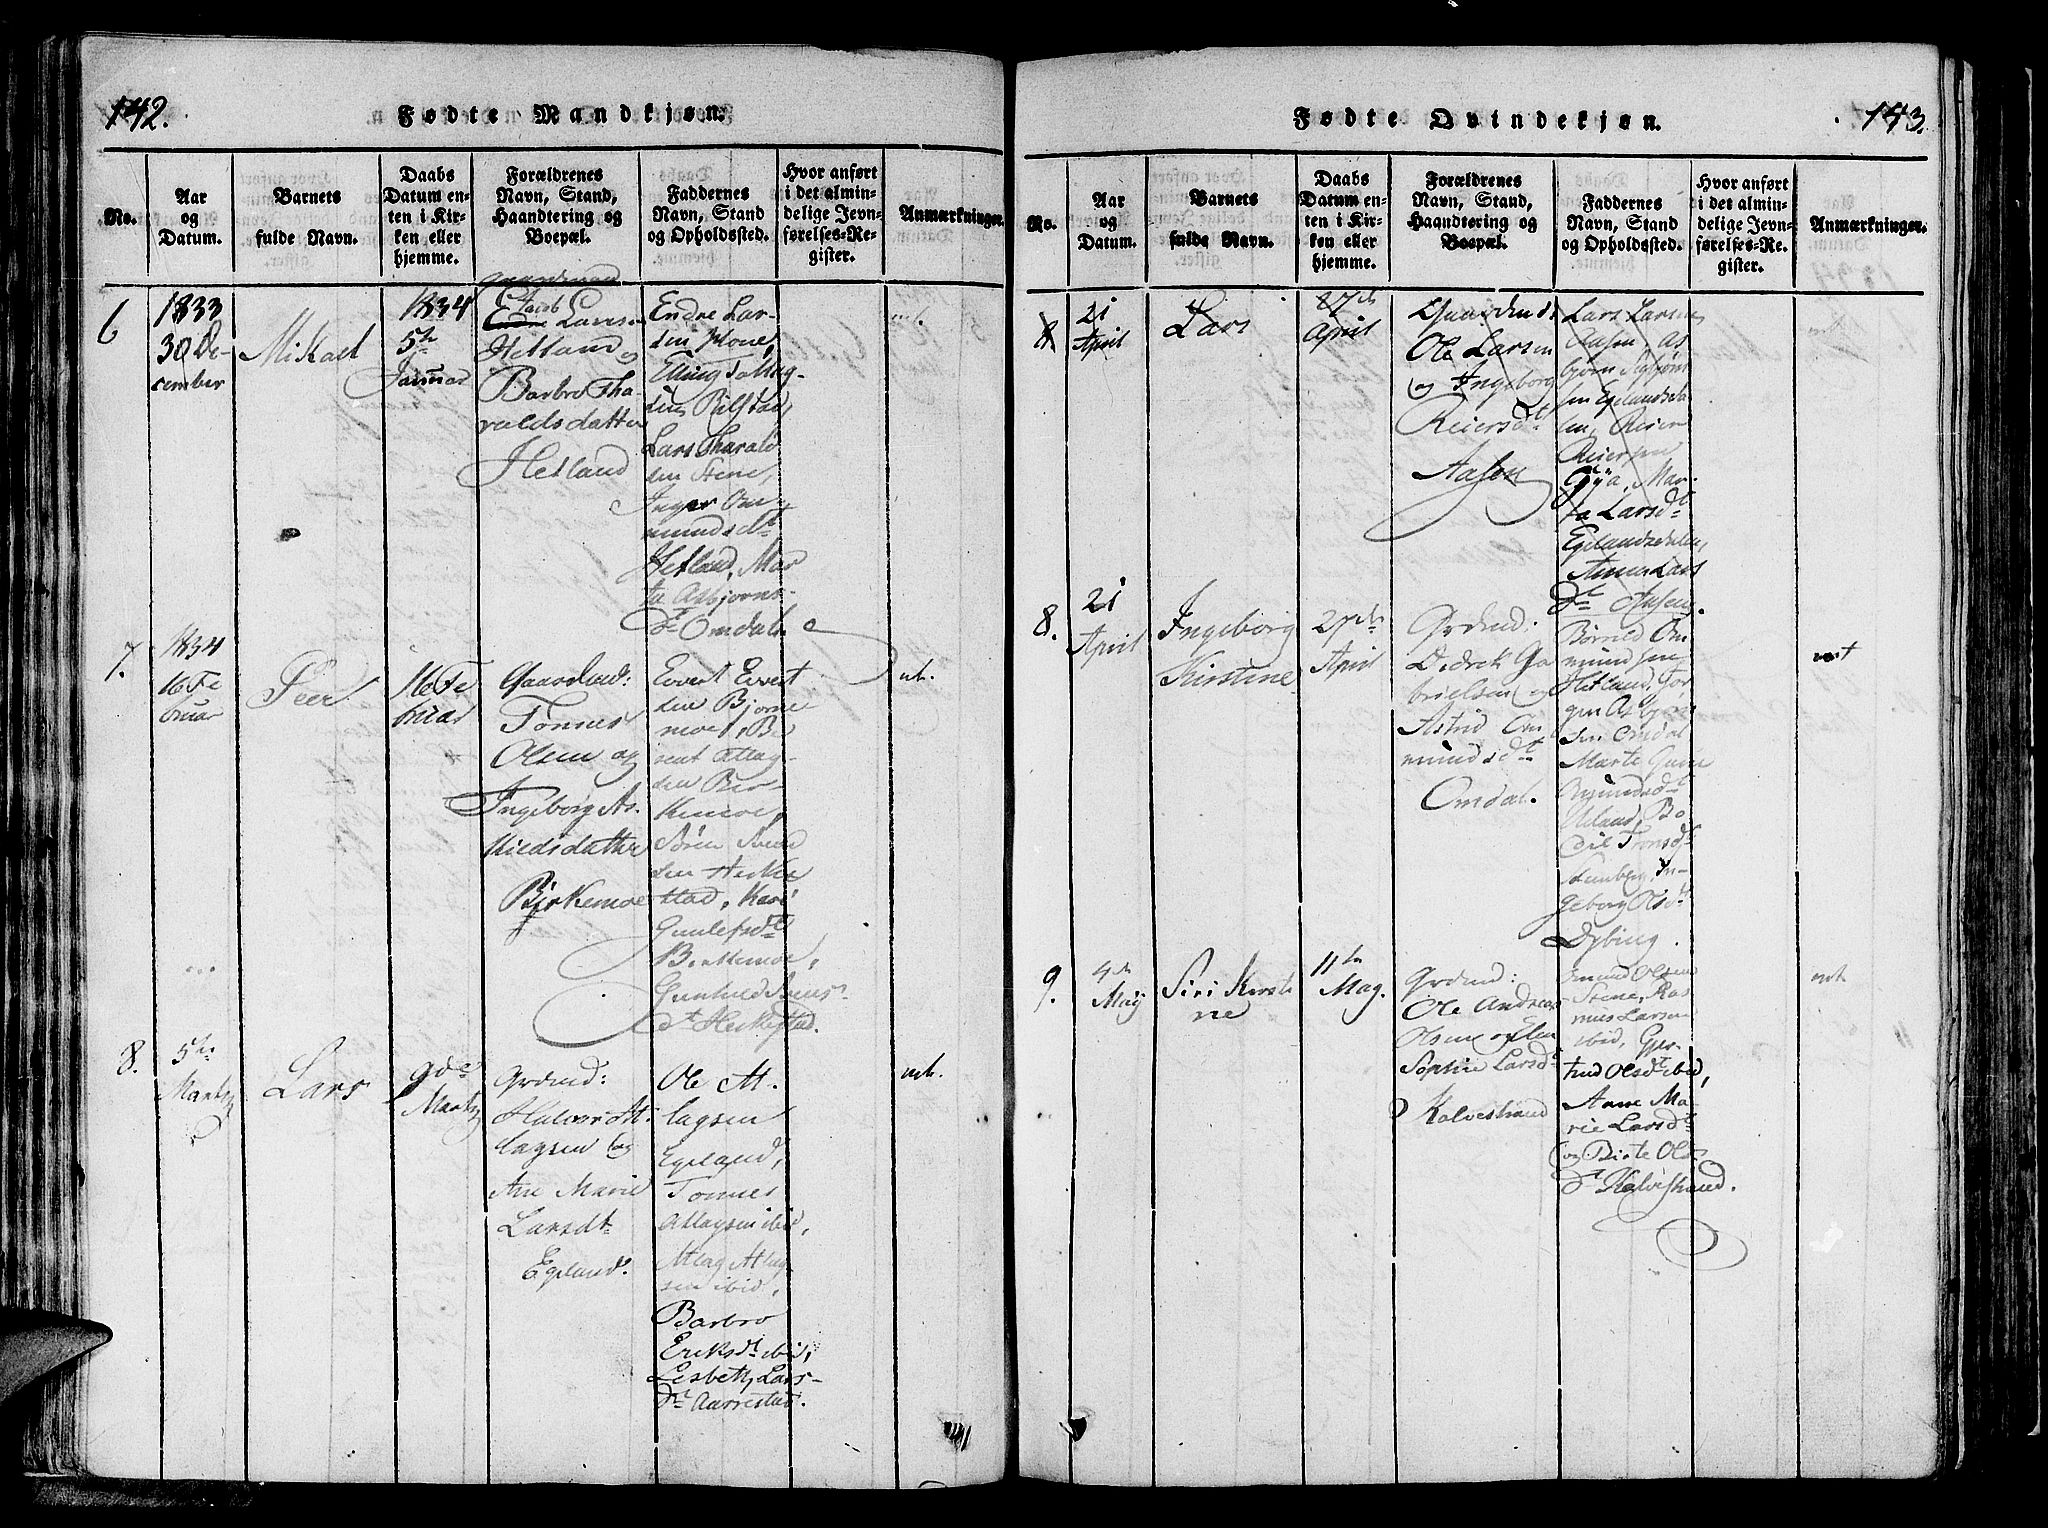 142.
Fødte Mandkjøn.
No.
Aar
og
Datum.
Barnets
fulde Navn.
Daabs
Datum en-
ten i Kir-
ken eller
hjemme.
Forældrenes
Navn, Stand,
Haandtering og
Boepæl.
Faddernes
Navn, Stand
og Opholdssted.
Hvor anført
i det almin-
delige Jevn-
førelses-Re-
gister.
Anmærkninger.
6
1833
30 De-
cember
Mikael
1834
5te
Januar
Gaardmand
Jacob
Endre Lars-
Hetland og
Barbro Tha-
raldsdatter
Hetland
Endre Lar-
sen Mone,
Elling
Rilstad,
Lars Tharald
sen Stene,
Inger Om-
mundsdt
Hetland, Mar
ta Asbjørns-
dt Omdal.
nt.
7.
1834
16 Fe
bruar
Peer
16 Fe
bruar
Gaardmd:
Tønnes
Olsen og
Ingeborg As-
Birkemoe
Evert Evert
sen Bjerne
moe, B
ent Atlag-
sen Bir-
kemoe,
Søren
sen Heske
stad, Kari
Gunlefsdt
Birkemoe,
Gunhild
dt Heskestad.
nt.
8.
5te
Martz
Lars
9de
Martz
Grdmd:
Halvor At-
lagsen og
Ane Marie
Larsdt
Egeland.
Ole At-
lagsen
Egeland,
Tønnes
Atlagsen ibid,
Atlag Atlag
sen ibid,
Barbro
Eriksdt ibid,
Lisbeth Lars-
dt Aarrestad.
nt.
143.
Fødte Qvindekjøn.
No.
Aar
og
Datum.
Barnets
fulde Navn.
Daabs
Datum en-
ten i Kir-
ken eller
hjemme.
Forældrenes
Navn, Stand,
Haandtering og
Boepæl.
Faddernes
Navn, Stand
og Opholdssted.
Hvor anført
i det almin-
delige Jevn-
førelses-Re-
gister.
Anmærkninger.
8.
21
April
Lars
27de
April
Gaardmd:
Ole Larsen
og Ingeborg
Reiersdt
Aasen
Lars Larsen
Aasen, As
bjørn Sigbjørn
sen Egelandsda
len, Reier
Reiersen
Gya, Mar-
ta Larsdt
Egelandsdalen,
Anna Lars
dt Aasen.
8.
21
April
Ingeborg
Kirstine
27de
April
Grdmd:
Didrek Ga
brielsen og
Astrid Om
mundsdt
Omdal.
Børild Om
mundsen
Hetland, Tor
gen Asbjørn
sen Omdal
Marte
Omundsdt
Bo
dil
In-
geborg Olsdt
Dybing.
nt
9.
4de
May
Siri Kirsti
ne
11te
May.
Grdmd:
Ole Andreas
Olsen og Elen
Sophie Larsdt
Kalvestrand
Olsen
Stene, Ras
mus Larsen
ibid, Gjer-
trud Olsdt ibid,
Anne Ma-
rie Larsdt
og Birte Ols
dt Kalvestrand.
nt.